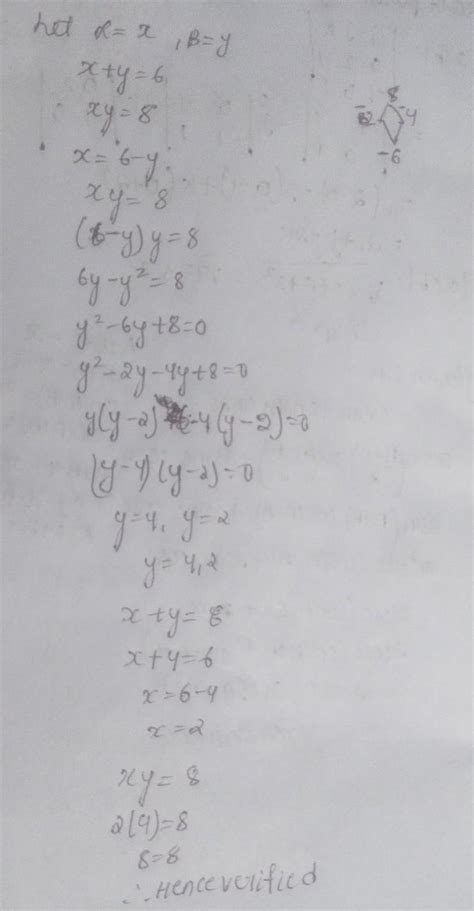 Let α = x , B = y
x+y = 6
xy = 8
x = 6-y
xy = 8
(6-y) y = 8
6y - y² = 8
y² - 6y + 8 = 0
y² - 2y - 4y + 8 = 0
y(y-2) -4(y-2) = 0
(y-4) (y-2) = 0
y = 4, y = 2
y = 4,2
x + y = 8
x + 4 = 6
x = 6-4
x = 2
xy = 8
2(4) = 8
8 = 8
∴ Hence verified
8
-2 -4
-6